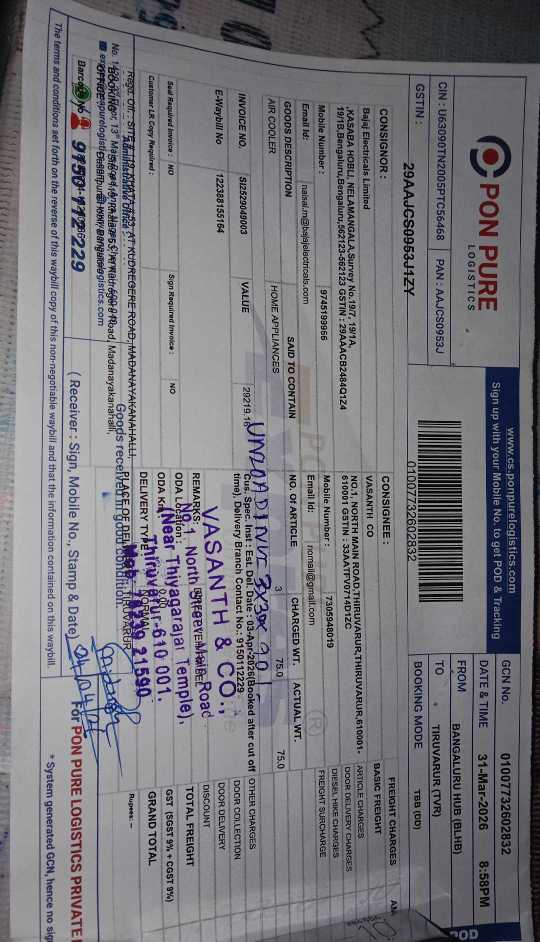 PON PURE
LOGISTICS
www.cs.ponpurelogistics.com
Sign up with your Mobile No. to get POD & Tracking
POD
CIN : U63090TN2005PTC56468
PAN : AAJCS0953J
GSTIN :
29AAJCS0953J1ZY
01007732602832
GCN No.
01007732602832
DATE & TIME
31-Mar-2026
8:58PM
FROM
BANGALURU HUB (BLHB)
TO
TIRUVARUR (TVR)
BOOKING MODE
TBB (DD)
CONSIGNOR :
Bajaj Electricals Limited
,KASABA HOBLI, NELAMANGALA,Survey No.19/7, 19/1A,
19/1B,Bengaluru,Bengaluru,562123-562123 GSTIN : 29AAACB2484Q1Z4
Mobile Number :
9745199966
Email Id:
naisal.m@bajajelectricals.com
CONSIGNEE :
VASANTH CO
NO.1, NORTH MAIN ROAD,THIRUVARUR,THIRUVARUR,610001-
610001 GSTIN : 33AATFV0714D1ZC
Mobile Number :
7305948019
Email Id:
nomail@gmail.com
FREIGHT CHARGES
BASIC FREIGHT
ARTICLE CHARGES
DOOR DELIVERY CHARGES
DIESEL HIKE CHARGES
FREIGHT SURCHARGE
GOODS DESCRIPTION
SAID TO CONTAIN
NO. OF ARTICLE
CHARGED WT.
ACTUAL WT.
AIR COOLER
HOME APPLIANCES
3
75.0
75.0
INVOICE NO.
SI2529049003
VALUE
29219.16
E-Waybill No
122388155164
Cus. Spec. Inst : Est. Del. Date : 03-Apr-2026(Booked after cut off
time), Delivery Branch Contact No : 9150112229
OTHER CHARGES
DOOR COLLECTION
DOOR DELIVERY
DISCOUNT
TOTAL FREIGHT
GST (SGST 9% + CGST 9%)
GRAND TOTAL
Rupees: --
Seal Required Invoice :
NO
Sign Required Invoice :
NO
Customer LR Copy Required :
REMARKS:
ODA Location :
ODA Km :
0.00
DELIVERY TYPE :
NORMAL
PLACE OF DELIVERY
TIRUVARUR
VASANTH & CO.,
No.1 North Main Road
(Near Thiyagarajar Temple),
Thiruvarur-610 001.
Goods received in good condition
9150 112 229
( Receiver : Sign, Mobile No., Stamp & Date)
For PON PURE LOGISTICS PRIVATE
The terms and conditions set forth on the reverse of this waybill copy of this non-negotiable waybill and that the information contained on this waybill
* System generated GCN, hence no sig